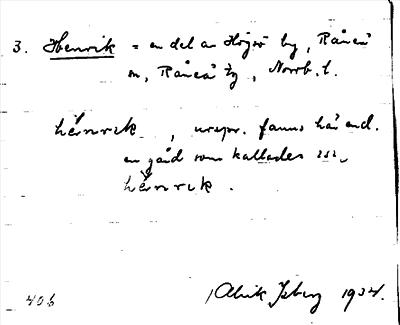 3. Henrik = en del av Högsö by, Råneå
sn, Råneå tg, Norrb. l.
hèinrik , urspr. fanns här end.
en gård som kallades
hèinrik.
406 Alvik Isberg 1934.